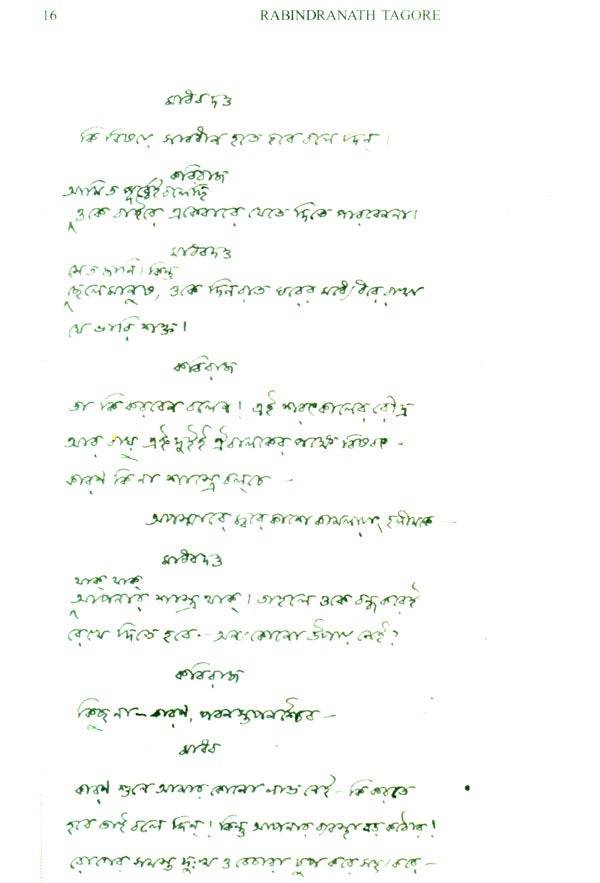 16 RABINDRANATH TAGORE
মাধবদত্ত
কি বিষয়ে সাবধান হতে হবে বলে দিন।
কবিরাজ
আমিত পূর্ব্বেই বলেছি
ওকে বাইরে একেবারে যেতে দিতে পারবেননা।
মাধবদত্ত
সেত জানি। কিন্তু
ছেলেমানুষ, ওকে দিনরাত ঘরের মধ্যে ধরে রাখা
যে ভারি শক্ত।
কবিরাজ
তা কি করবেন বলেন। এই শরৎকালের রৌদ্র
আর বায়ু এই দুইই ঐ বালকের পক্ষে বিষবৎ –
কারণ কিনা শাস্ত্রে বল্‌চে –
অপস্মারে জ্বরে কাশে কামলায়াং হলীমকে –
মাধবদত্ত
থাক্‌ থাক্‌
আপনার শাস্ত্র থাক্‌। তাহলে ওকে বন্ধ করেই
রেখে দিতে হবে – অন্য কোনো উপায় নেই?
কবিরাজ
কিছু না – কারণ, পবনে তপনে চৈব –
মাধব
কারণ শুনে আমার কোনো লাভ নেই – কি করতে
হবে তাই বলে দিন। কিন্তু আপনার ব্যবস্থা বড় কঠোর।
রোগের সমস্ত দুঃখ ও বেচারা চুপ করে সহ্য করে –